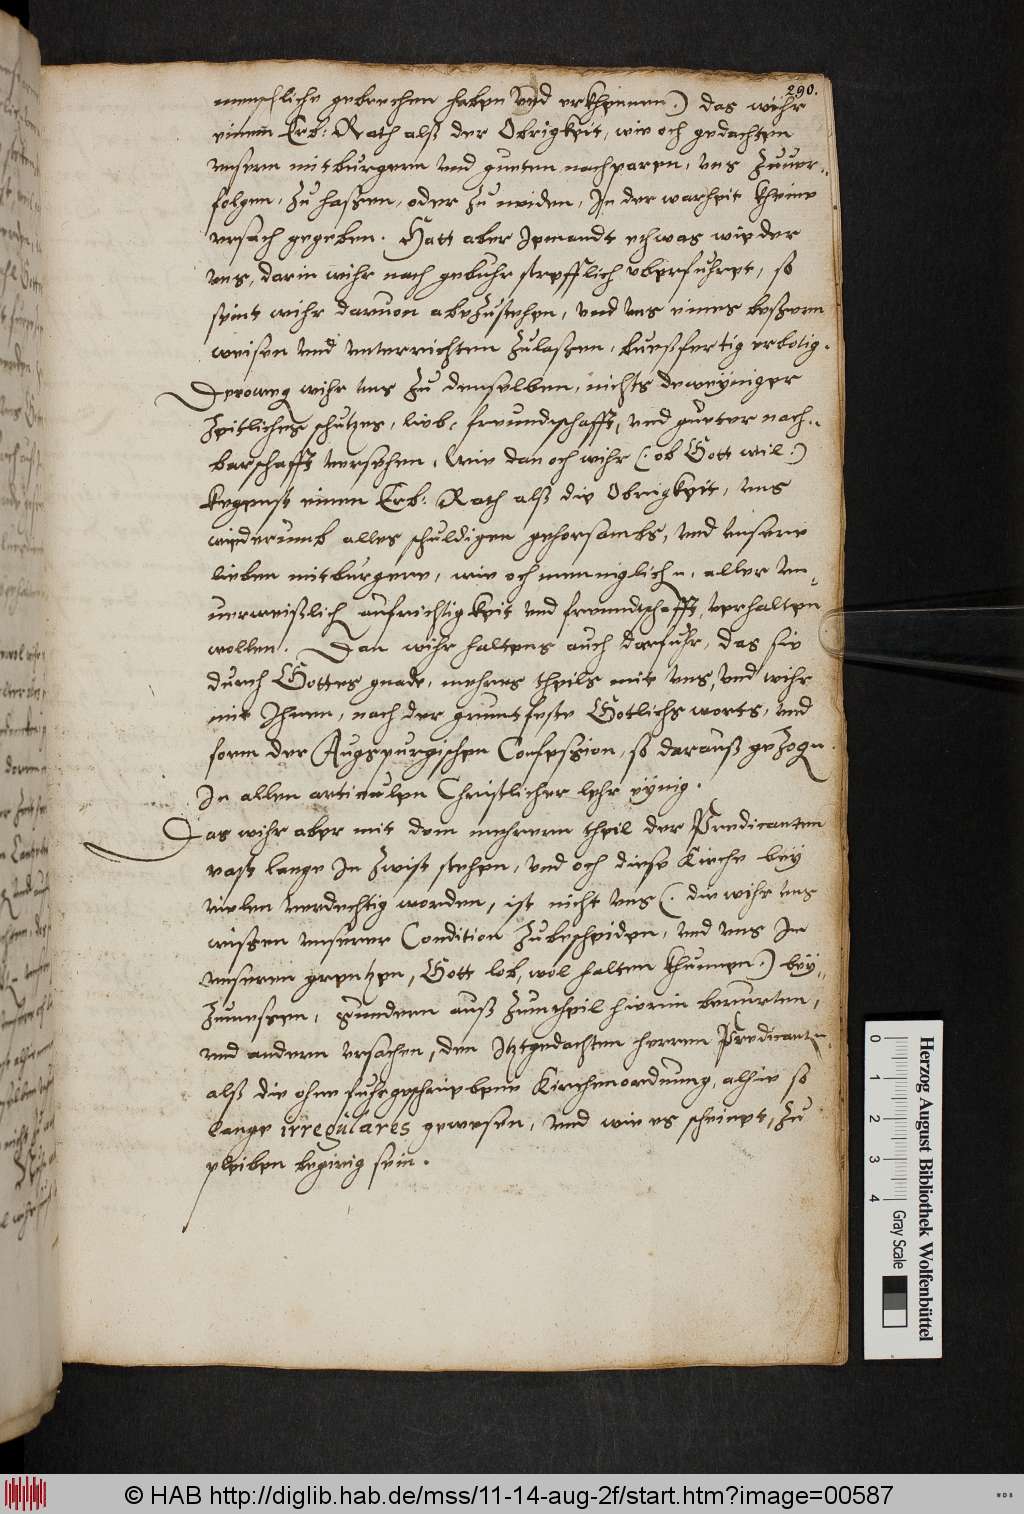 290.
menschliche gebrechen haben vnd erkhennen.) das wihr
einem Erb: Rath alß der Obrigkeit, wie och gedachten
vnsern mitburgern vnd gueten nachparen, vns Zuuer-
folgen, Zu haßen, oder Zu neiden, In der warheit kheine
vrsach gegeben. Hatt aber Jemandt ethwas wieder
vns, darin wihr nach gebuhr strefflich vberfuhret, so
seint wihr daruon abezustehen, vnd vns eines beßern
weisen vnd vnterrichten Zulaßen, bueßfertig erbotig.
Deroweg wihr vns Zu denselben, nichts deweyniger
Zeitliches schutzes, lieb, freundtschafft, vnd gueter nach-
barschafft versehen, Wie dan och wihr (: ob Gott wil :)
kegenst einen Erb: Rath alß die Obrigkeit, vns
wiederumb alles schuldigen gehorsambs, vnd vnsere
lieben mitburgere, wie och menniglich, aller vn-
verweißlich aufrichtigkeit vnd freundtschafft verhalten
wollen. Dan wihr haltens auch darfuhr, das sie
durch Gottes gnade, mehres theils mit vns, vnd wihr
mit Ihnen, nach der gruntfeste Gotlichs worts, vnd
form der Augspurgischen Confession, so darauß gezogn
In allen articulen Christlicher lehr eynig.
Das wihr aber mit dem mehrern theil der Predicanten
vast lange In Zwist stehen, vnd och diese Kirche bey
vielen verdechtig worden, ist nicht vns (: die wihr vns
wißen vnserer Condition Zubescheiden, vnd vns In
vnseren grentzen, Gott lob, wol halten khunnen :) bey-
Zumeßen, sundern auß Zumtheil hierin berurten,
vnd andern vrsachen, den Itztgedachten herren Predicantn
alß die ohne fuhrgeschriebene Kirchenordnung, alhie so
lange irregulares gewesen, vnd wie es scheinet, Zu
pleiben begirig sein.
Herzog August Bibliothek Wolfenbüttel
0 1 2 3 4
Gray Scale
© HAB http://diglib.hab.de/mss/11-14-aug-2f/start.htm?image=00587